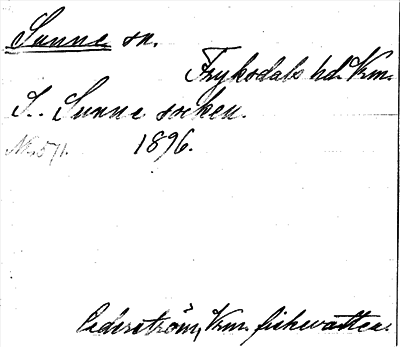 Sunne sn.
Fryksdals hd. Krm.
S. Sunne socken.
N. 571. 1896.
Cederström, Krm. fiskevatten.